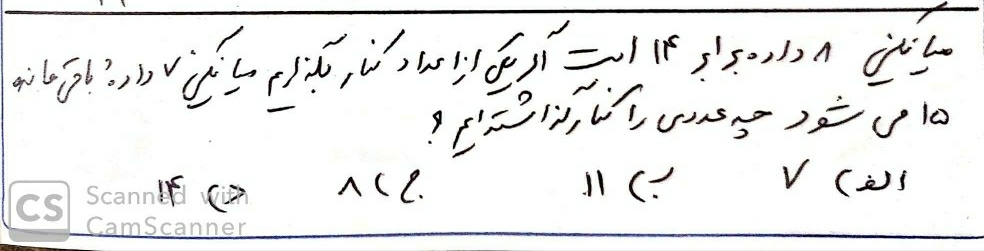 میانگین ۸ داده برابر ۱۴ است اگر یکی از اعداد کنار بگذاریم میانگین ۷ داده باقی مانده
۱۵ می شود چه عددی را کنار گذاشته ایم ؟
الف) ۷ ب) ۱۱ ج) ۸ د) ۱۴
CS Scanned with
CamScanner